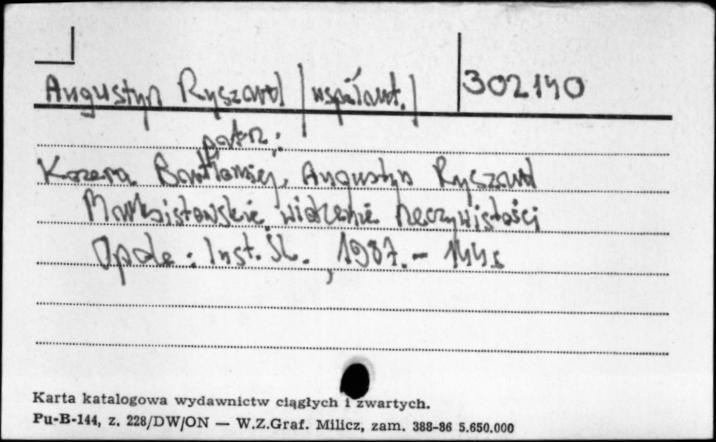 Augustyn Ryszard /współaut./ 302140
patrz:
Kozera Bartłomiej, Augustyn Ryszard
Marksistowskie widzenie rzeczywistości
Opole : Inst. Śl., 1987. - 144 s
Karta katalogowa wydawnictw ciągłych i zwartych.
Pu-B-144, z. 228/DW/ON — W.Z.Graf. Milicz, zam. 388-86 5.650.000